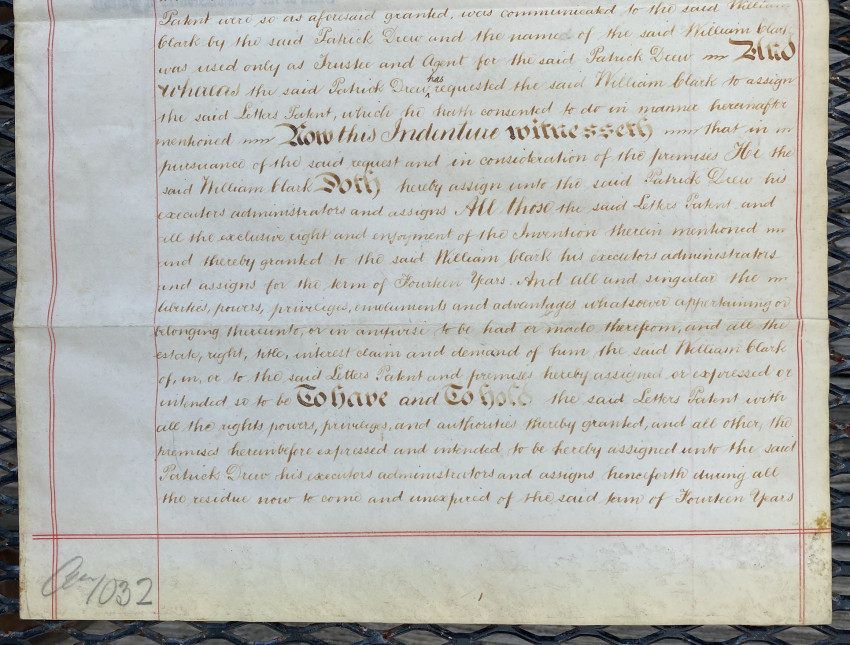 Patent were so as aforesaid granted, was communicated to the said William
Clark by the said Patrick Drew and the name of the said William Clark
was used only as Trustee and Agent for the said Patrick Drew And
whereas the said Patrick Drew has requested the said William Clark to assign
the said Letters Patent, which he hath consented to do in manner hereinafter
mentioned Now this Indenture witnesseth that in
pursuance of the said request and in consideration of the premises He the
said William Clark Doth hereby assign unto the said Patrick Drew his
executors administrators and assigns All those the said Letters Patent and
all the exclusive right and enjoyment of the Invention therein mentioned
and thereby granted to the said William Clark his executors administrators
and assigns for the term of Fourteen Years. And all and singular the
liberties, powers, privileges, emoluments and advantages whatsoever appertaining or
belonging thereunto, or in anywise to be had or made therefrom, and all the
estate, right, title, interest claim and demand of him the said William Clark
of, in, or to the said Letters Patent and premises hereby assigned or expressed or
intended so to be To have and To hold the said Letters Patent with
all the rights powers, privileges, and authorities thereby granted, and all other, the
premises hereinbefore expressed and intended, to be hereby assigned unto the said
Patrick Drew his executors administrators and assigns henceforth during all
the residue now to come and unexpired of the said term of Fourteen Years
1032